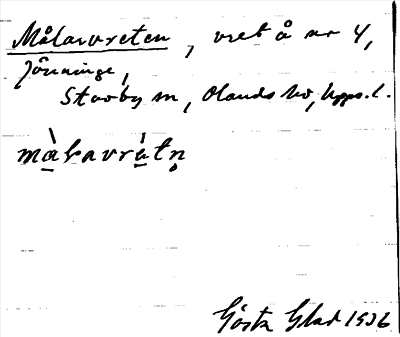 Målarvreten, vret å nr 4,
Jönninge,
Stavby sn, Olands hd, Upps. l.
màlavrètn̥
Gösta Glad 1936